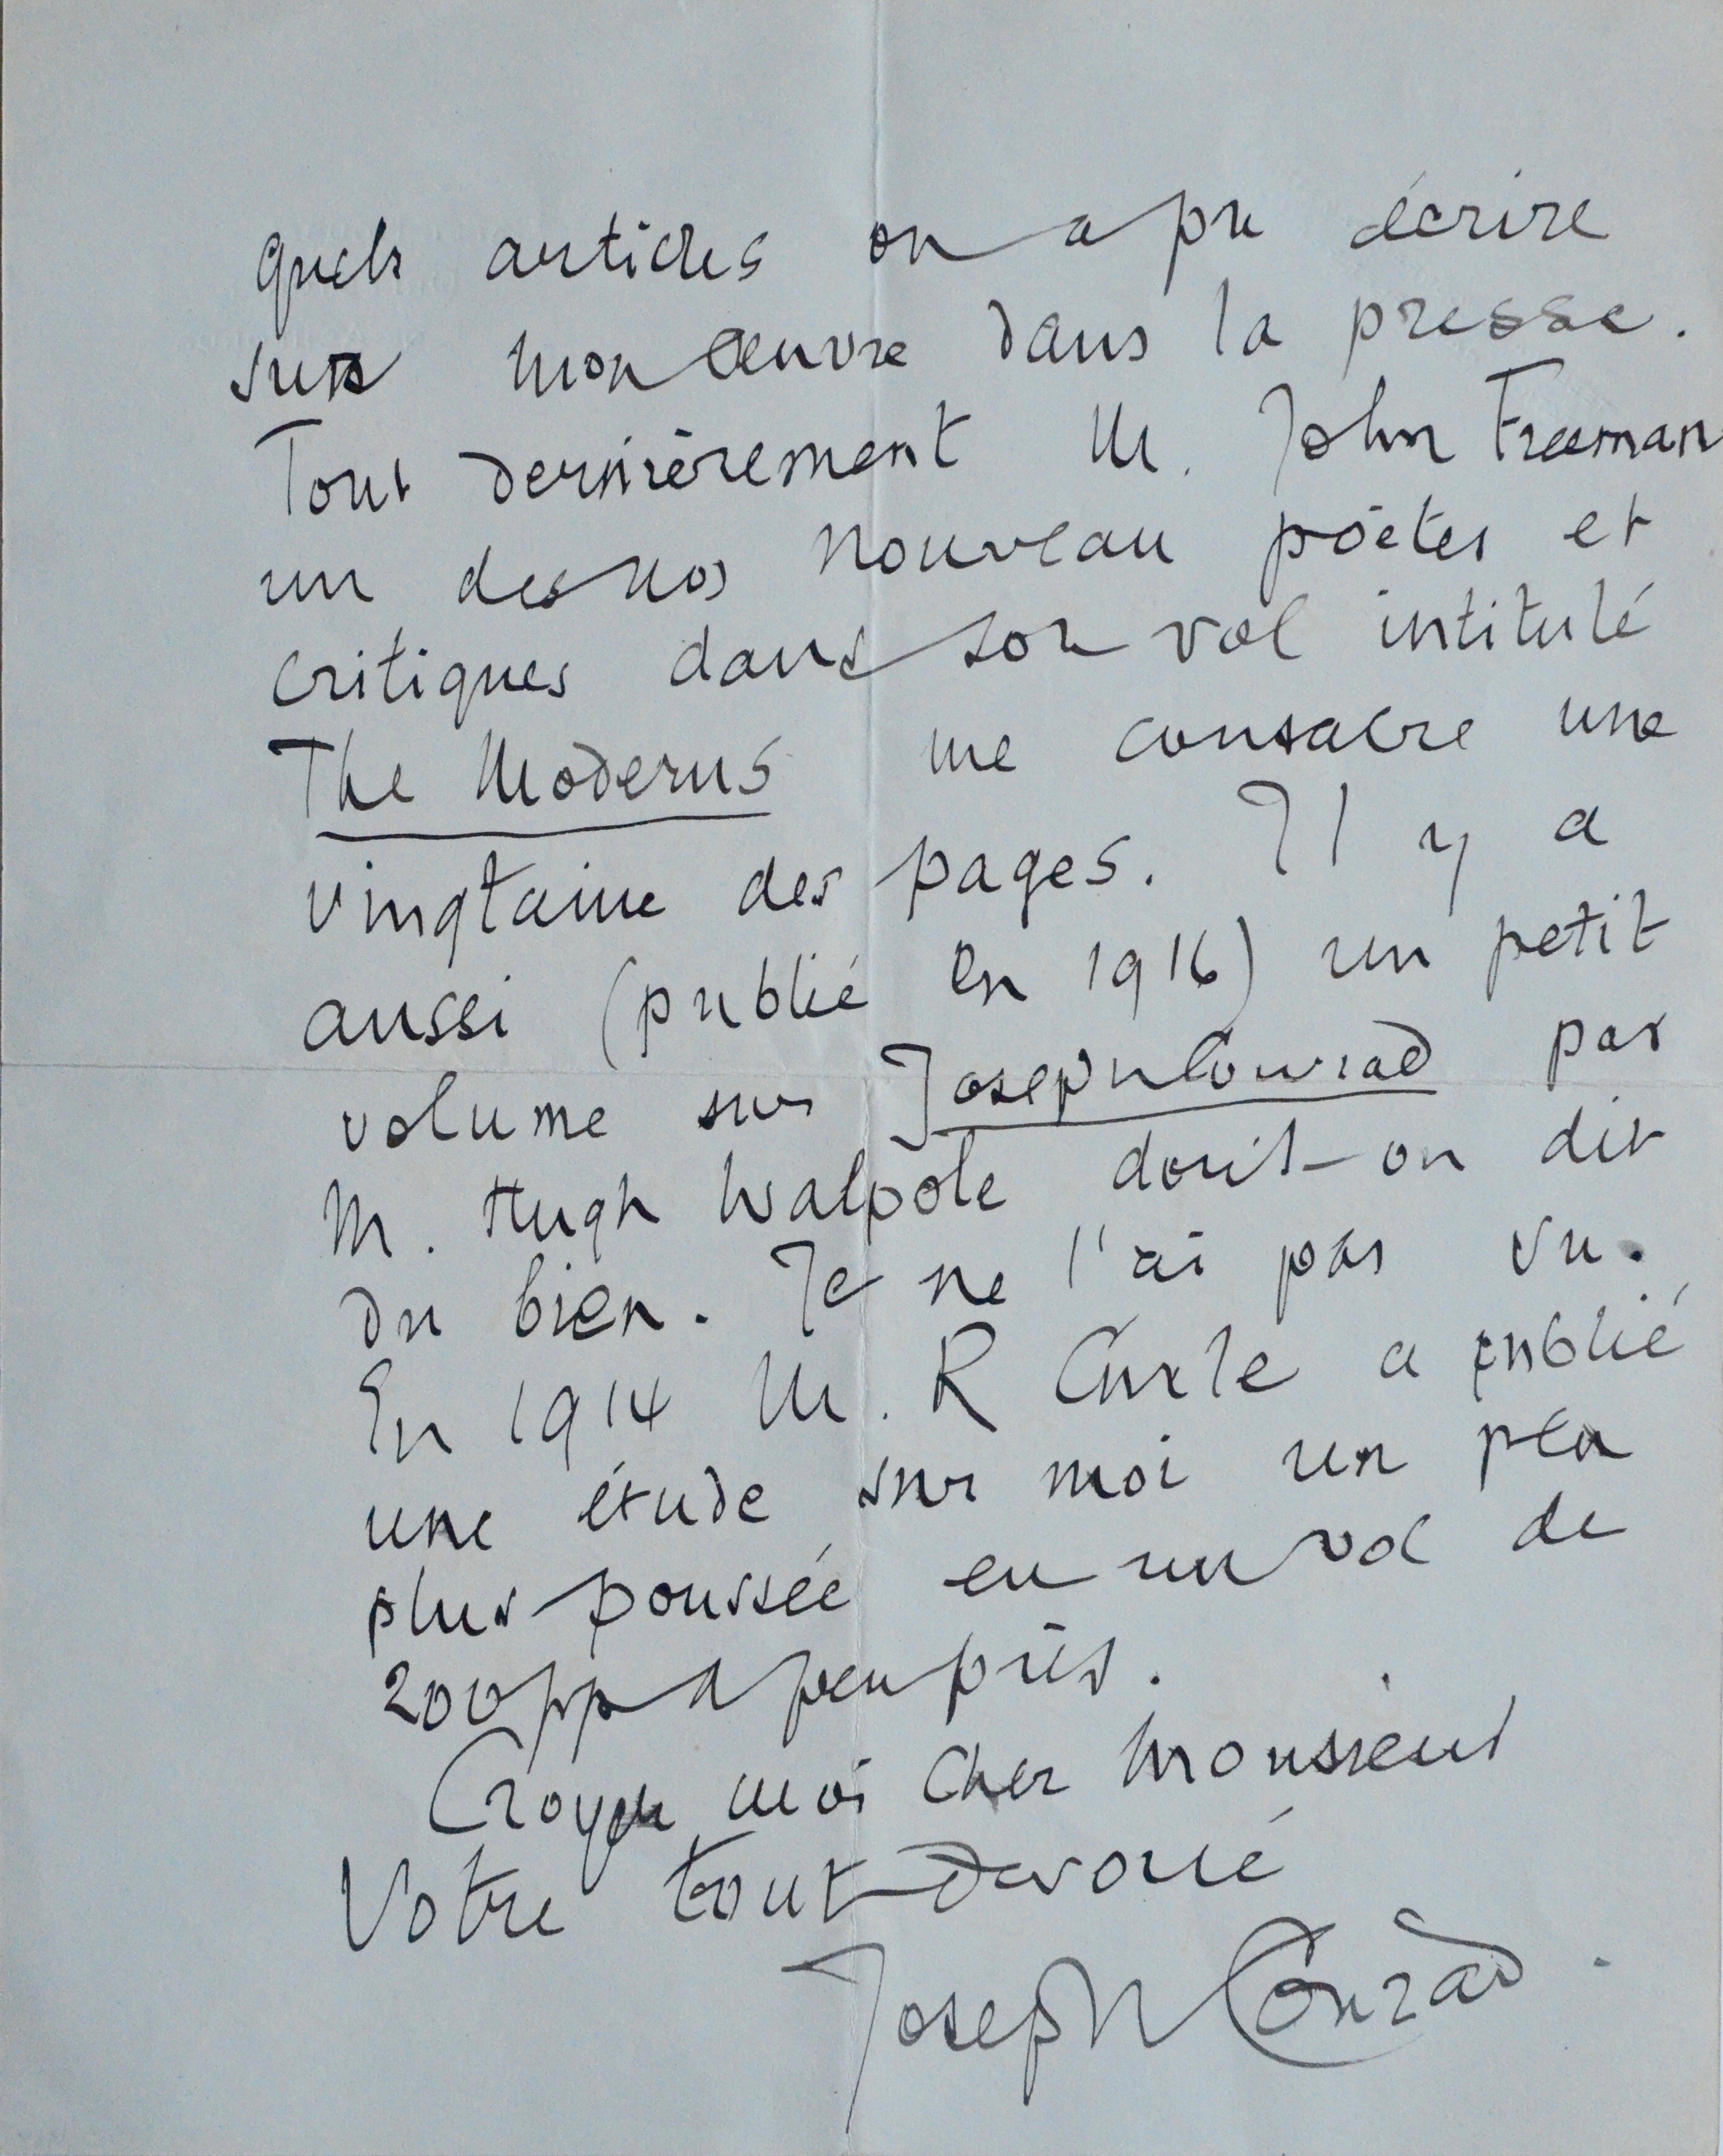 quels articles on a pu écrire
sur mon œuvre dans la presse.
Tout dernièrement M. John Freeman
un des nos nouveau pöetes et
critiques dans son vol intitulé
The Moderns me consacre une
vingtaine des pages. Il y a
aussi (publié en 1916) un petit
volume sur Joseph Conrad par
M. Hugh Walpole dont on dit
du bien. Je ne l'ai pas vu.
En 1914 M. R Curle a publié
une étude sur moi un peu
plus poussée en un vol de
200 pp a peu près.
Croyez moi cher Monsieur
Votre tout devoué
Joseph Conrad.